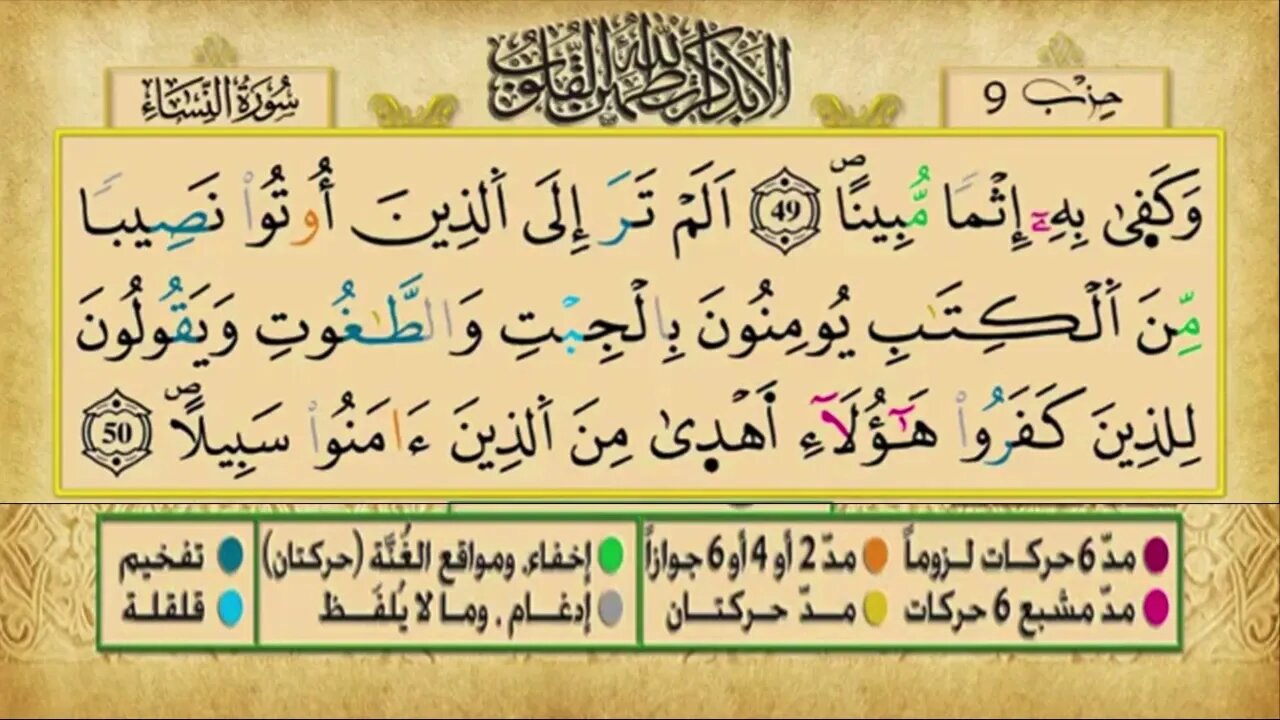 حِزْب 9
أَلَا بِذِكْرِ اللَّهِ تَطْمَئِنُّ الْقُلُوبُ
سُورَةُ النِّسَاءِ
وَكَفىٰ بِهِۦٓ إِثْمًا مُّبِينًا ۖ 49 أَلَمْ تَرَ إِلَى اَلذِينَ أُوتُواْ نَصِيبًا
مِّنَ اَلْكِتَٰبِ يُومِنُونَ بِالْجِبْتِ وَالطَّٰغُوتِ وَيَقُولُونَ
لِلذِينَ كَفَرُواْ هَٰٓؤُلَآءِ اَهْدىٰ مِنَ اَلذِينَ ءَامَنُواْ سَبِيلًا ۖ 50
مدّ 6 حركات لزوماً
مدّ 2 أو 4 أو 6 جوازاً
إخفاء، ومواقع الغُنَّة (حركتان)
تفخيم
مدّ مشبع 6 حركات
مدّ حركتان
إدغام . وما لا يُلفَظ
قلقلة